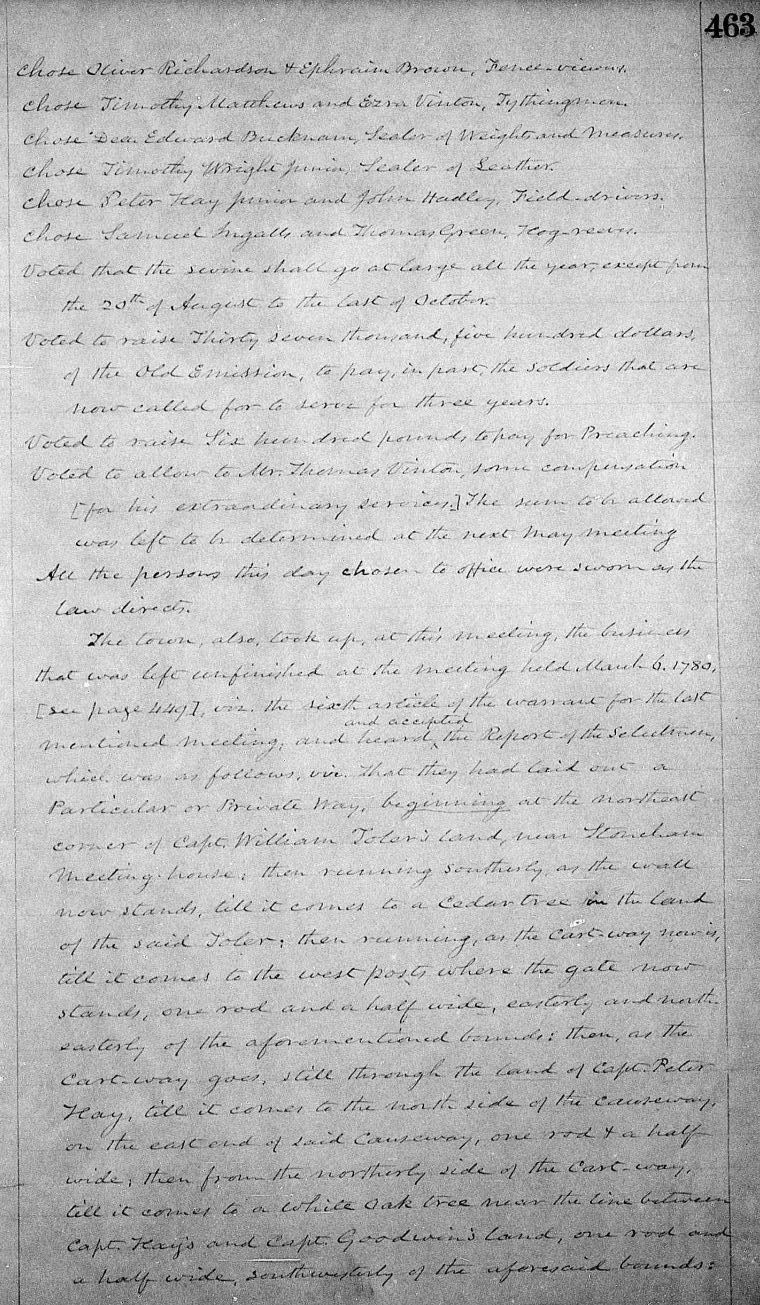 463
Chose Oliver Richardson & Ephraim Brown, Fence-viewers.
Chose Timothy Matthews and Ezra Vinton, Tythingmen.
Chose Dea. Edward Bucknam, Sealer of Weights and Measures.
Chose Timothy Wright junior, Sealer of Leather.
Chose Peter Hay junior and John Hadley, Field-drivers.
Chose Samuel Ingalls and Thomas Green, Hog-reeves.
Voted that the swine shall go at large all the year, except from
the 20th of August to the last of October.
Voted to raise Thirty seven thousand, five hundred dollars,
of the Old Emission, to pay, in part, the soldiers that are
now called for to serve for three years.
Voted to raise Six hundred pounds to pay for Preaching.
Voted to allow to Mr. Thomas Vinton, some compensation
[for his extraordinary services.] The sum to be allowed
was left to be determined at the next May meeting
All the persons this day chosen to office were sworn as the
law directs.
The town, also, took up, at this meeting, the business
that was left unfinished at the meeting held March 6. 1780,
[see page 449], viz. the sixth article of the warrant for the last
and accepted
mentioned meeting, and heard ‸ the Report of the Selectmen,
which was as follows, viz. That they had laid out a
Particular or Private Way, beginning at the northeast
corner of Capt. William Toler's land, near Stoneham
Meeting-house; then running southerly, as the wall
now stands, till it comes to a Cedar tree in the land
of the said Toler; then running, as the cart-way now is,
till it comes to the west posts where the gate now
stands, one rod and a half wide, easterly and north-
easterly of the aforementioned bounds: then, as the
cart-way goes, still through the land of Capt. Peter
Hay, till it comes to the north side of the causeway,
on the east end of said Causeway, one rod & a half
wide; then from the northerly side of the Cart-way,
till it comes to a white oak tree near the line between
Capt. Hay's and Capt. Goodwin's land, one rod and
a half wide, southwesterly of the aforesaid bounds: